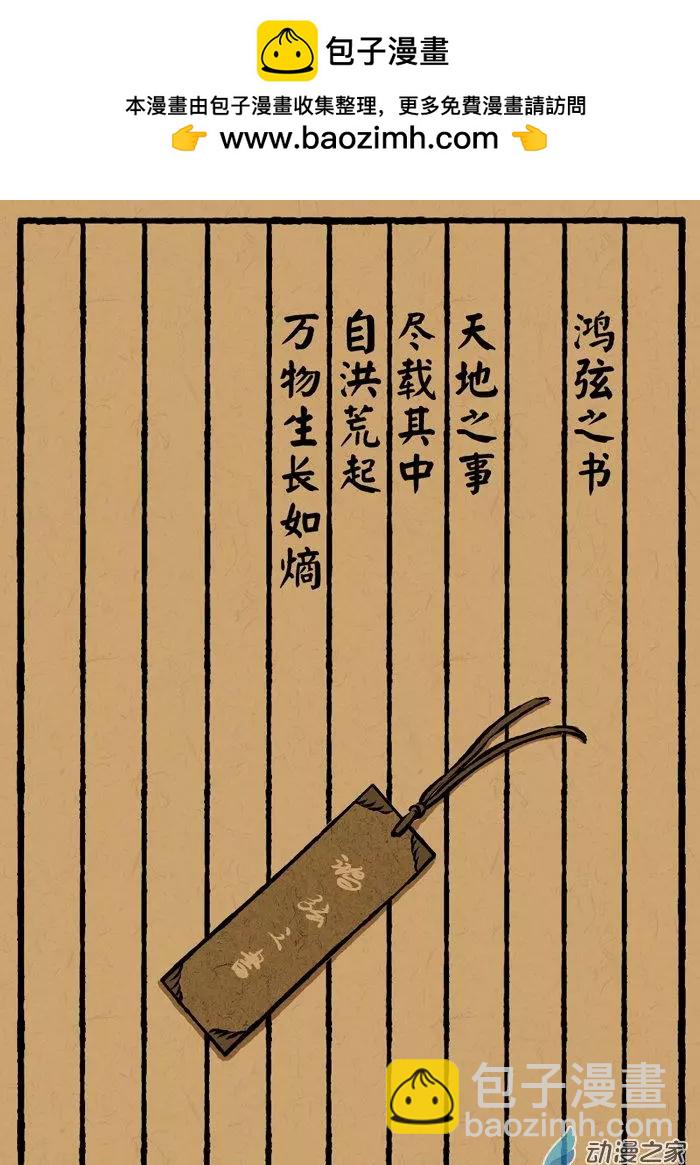 包子漫畫
本漫畫由包子漫畫收集整理，更多免費漫畫請訪問
👉 www.baozimh.com 👈
鸿弦之书
天地之事
尽载其中
自洪荒起
万物生长如熵
鴻弦之書
包子漫畫
baozimh.com
动漫之家